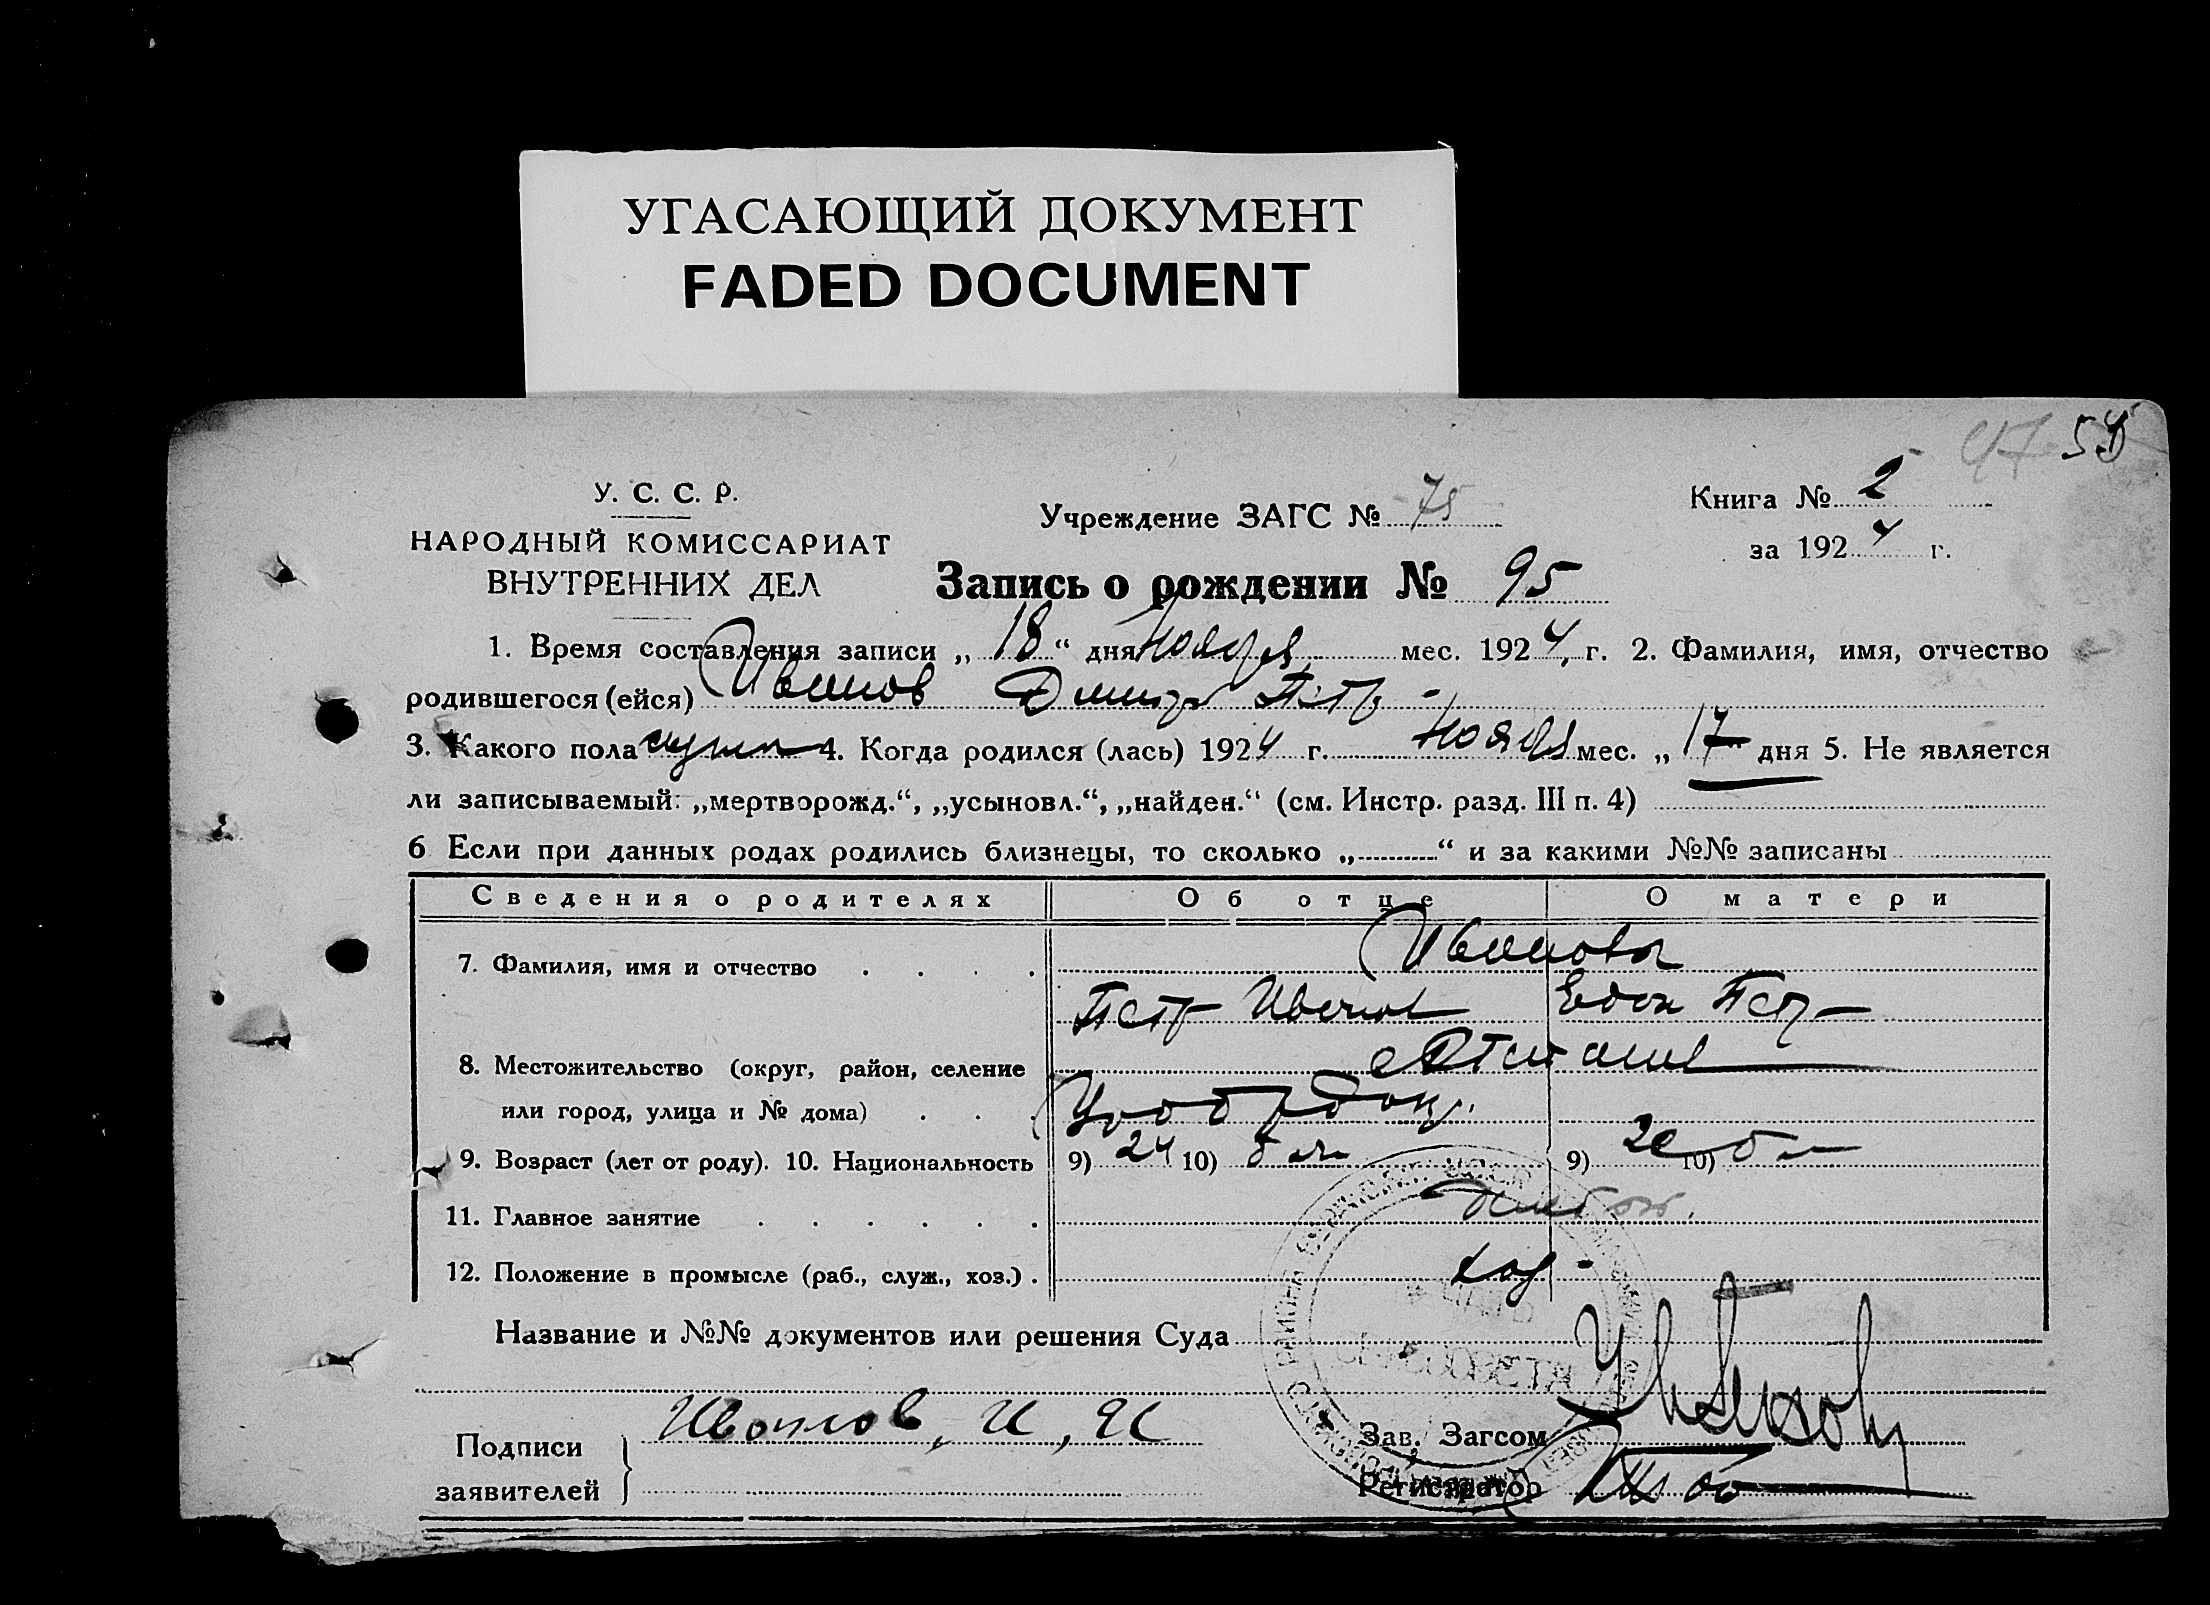 УГАСАЮЩИЙ ДОКУМЕНТ
FADED DOCUMENT
47 54
У. С. С. Р.
НАРОДНЫЙ КОМИССАРИАТ
ВНУТРЕННИХ ДЕЛ
Учреждение ЗАГС № 75
Книга № 2
за 1924 г.
Запись о рождении № 95
1. Время составления записи „ 18 “ дня Ноября мес. 1924 г. 2. Фамилия, имя, отчество
родившегося (ейся) Иванов Дмитр Петр -
3. Какого пола мужск 4. Когда родился (лась) 1924 г. Ноября мес. „ 17 “ дня 5. Не является
ли записываемый: „мертворожд.“, „усыновл.“, „найден.“ (см. Инстр. разд. III п. 4)
6 Если при данных родах родились близнецы, то сколько „ “ и за какими №№ записаны
Сведения о родителях Об отце О матери
7. Фамилия, имя и отчество Ивановы
Петр Иванов Евдок Петр
8. Местожительство (округ, район, селение
или город, улица и № дома)
9. Возраст (лет от роду). 10. Национальность 9) 24 10) 9) 20 10)
11. Главное занятие
12. Положение в промысле (раб., служ., хоз.) хоз -
Название и №№ документов или решения Суда
СЕЛЬСОВЕТА
Подписи
заявителей
Иванов, И, И
Зав. Загсом
Регистратор